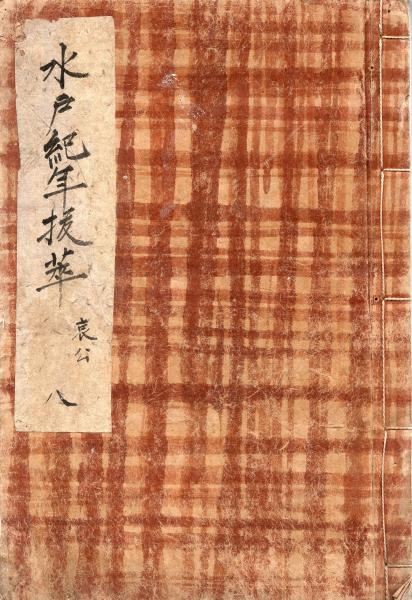 水戸紀年抜萃
哀公
八